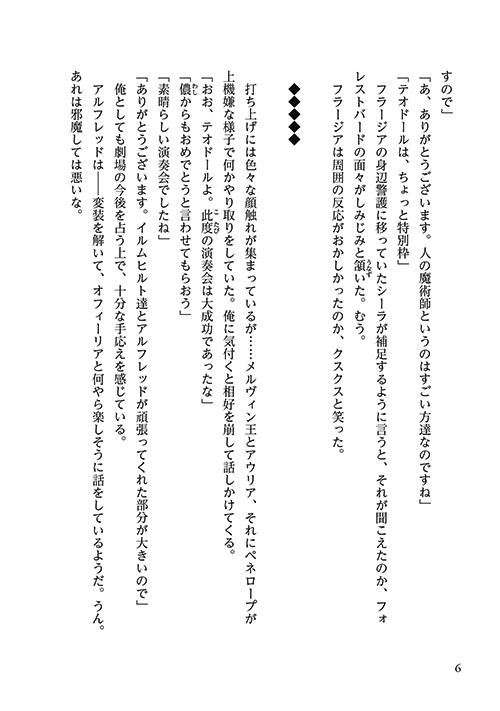 すので」
「あ、ありがとうございます。人の魔術師というのはすごい方達なのですね」
「テオドールは、ちょっと特別枠」
フラージアの身辺警護に移っていたシーラが補足するように言うと、それが聞こえたのか、フォ
レストバードの面々がしみじみと頷いた。むう。
フラージアは周囲の反応がおかしかったのか、クスクスと笑った。
◆◆◆◆◆
打ち上げには色々な顔触れが集まっているが……メルヴィン王とアウリア、それにペネロープが
上機嫌な様子で何かやり取りをしていた。俺に気付くと相好を崩して話しかけてくる。
「おお、テオドールよ。此度の演奏会は大成功であったな」
「儂からもおめでとうと言わせてもらおう」
「素晴らしい演奏会でしたね」
「ありがとうございます。イルムヒルト達とアルフレッドが頑張ってくれた部分が大きいので」
俺としても劇場の今後を占う上で、十分な手応えを感じている。
アルフレッドは――変装を解いて、オフィーリアと何やら楽しそうに話をしているようだ。うん。
あれは邪魔しては悪いな。
6